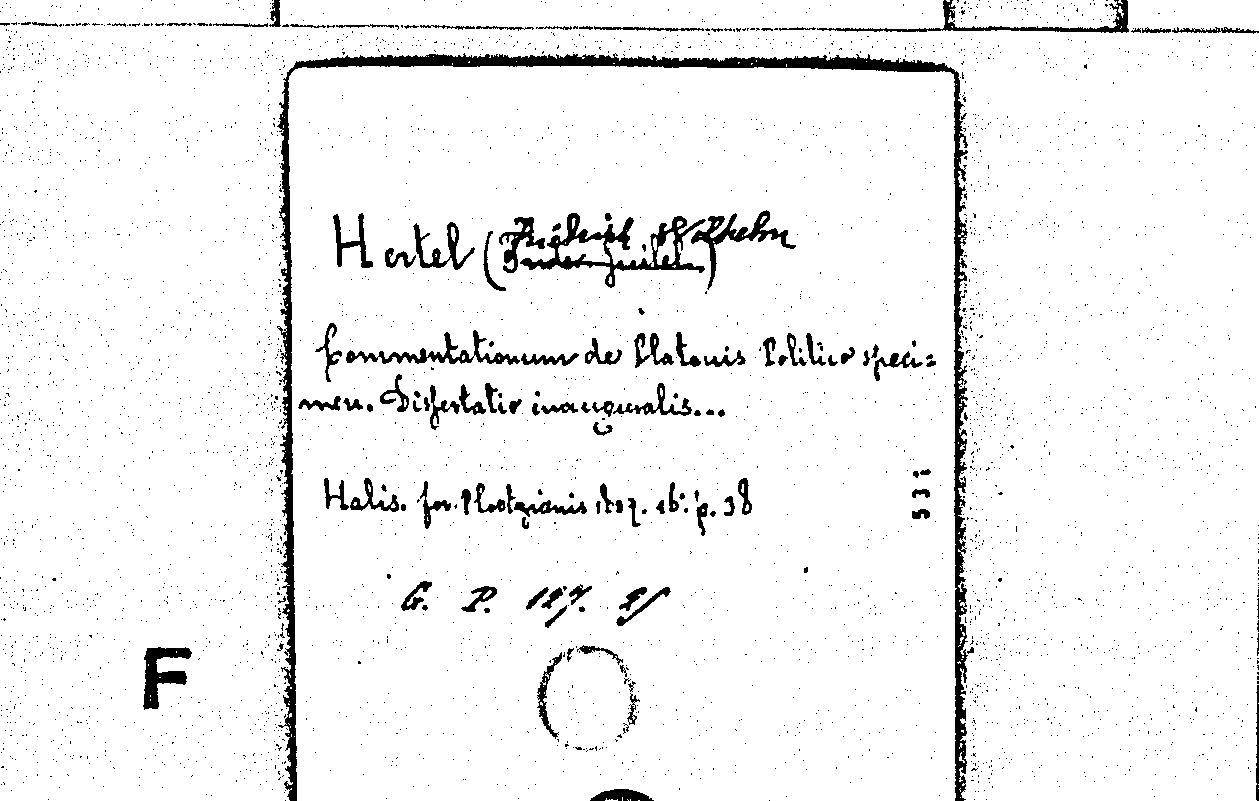 Hertel (Friedrich Wilhelm)
Commentationum de Platonis Politico speci=
men. Dissertatio inauguralis...
Halis. for. Ploetzianis 1837. 16. p. 38
531
G. P. 127. 21
F